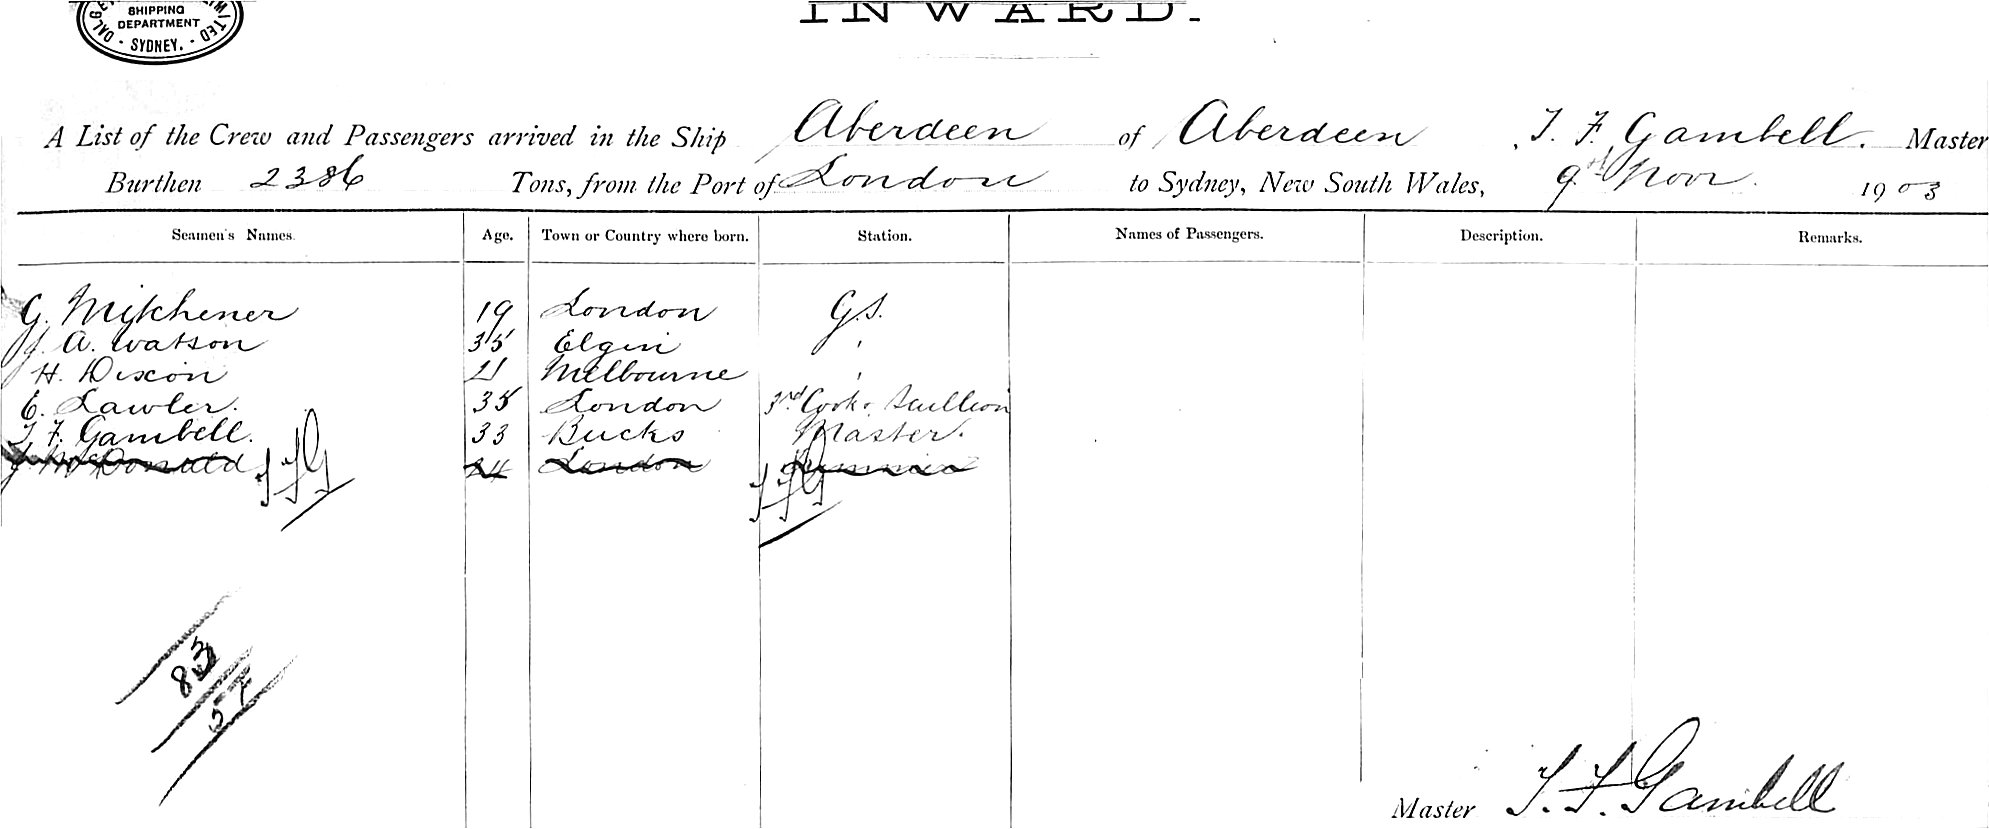 SHIPPING
DEPARTMENT
SYDNEY.
INWARD.
A List of the Crew and Passengers arrived in the Ship Aberdeen of Aberdeen T. F. Gambell. Master
Burthen 2386 Tons, from the Port of London to Sydney, New South Wales, 9th Novr. 1903
Seamen's Names. Age. Town or Country where born. Station. Names of Passengers. Description. Remarks.
G. Mitchener 19 London G.S.
J. A. Watson 35 Elgin '
H. Dixon 21 Melbourne '
E. Lawler. 35 London 3rd Cook & Scullion
T. F. Gambell. 33 Bucks Master.
J. McDonald 24 London
TFG TFG
83
57
Master T. F. Gambell